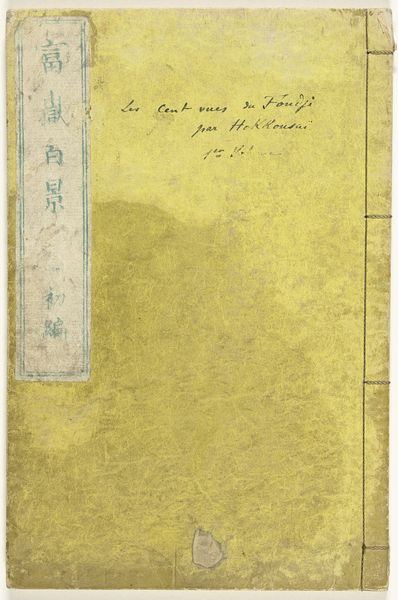 富嶽百景
初編
Les cent vues du Fouzi
par Hokkousaï
1er